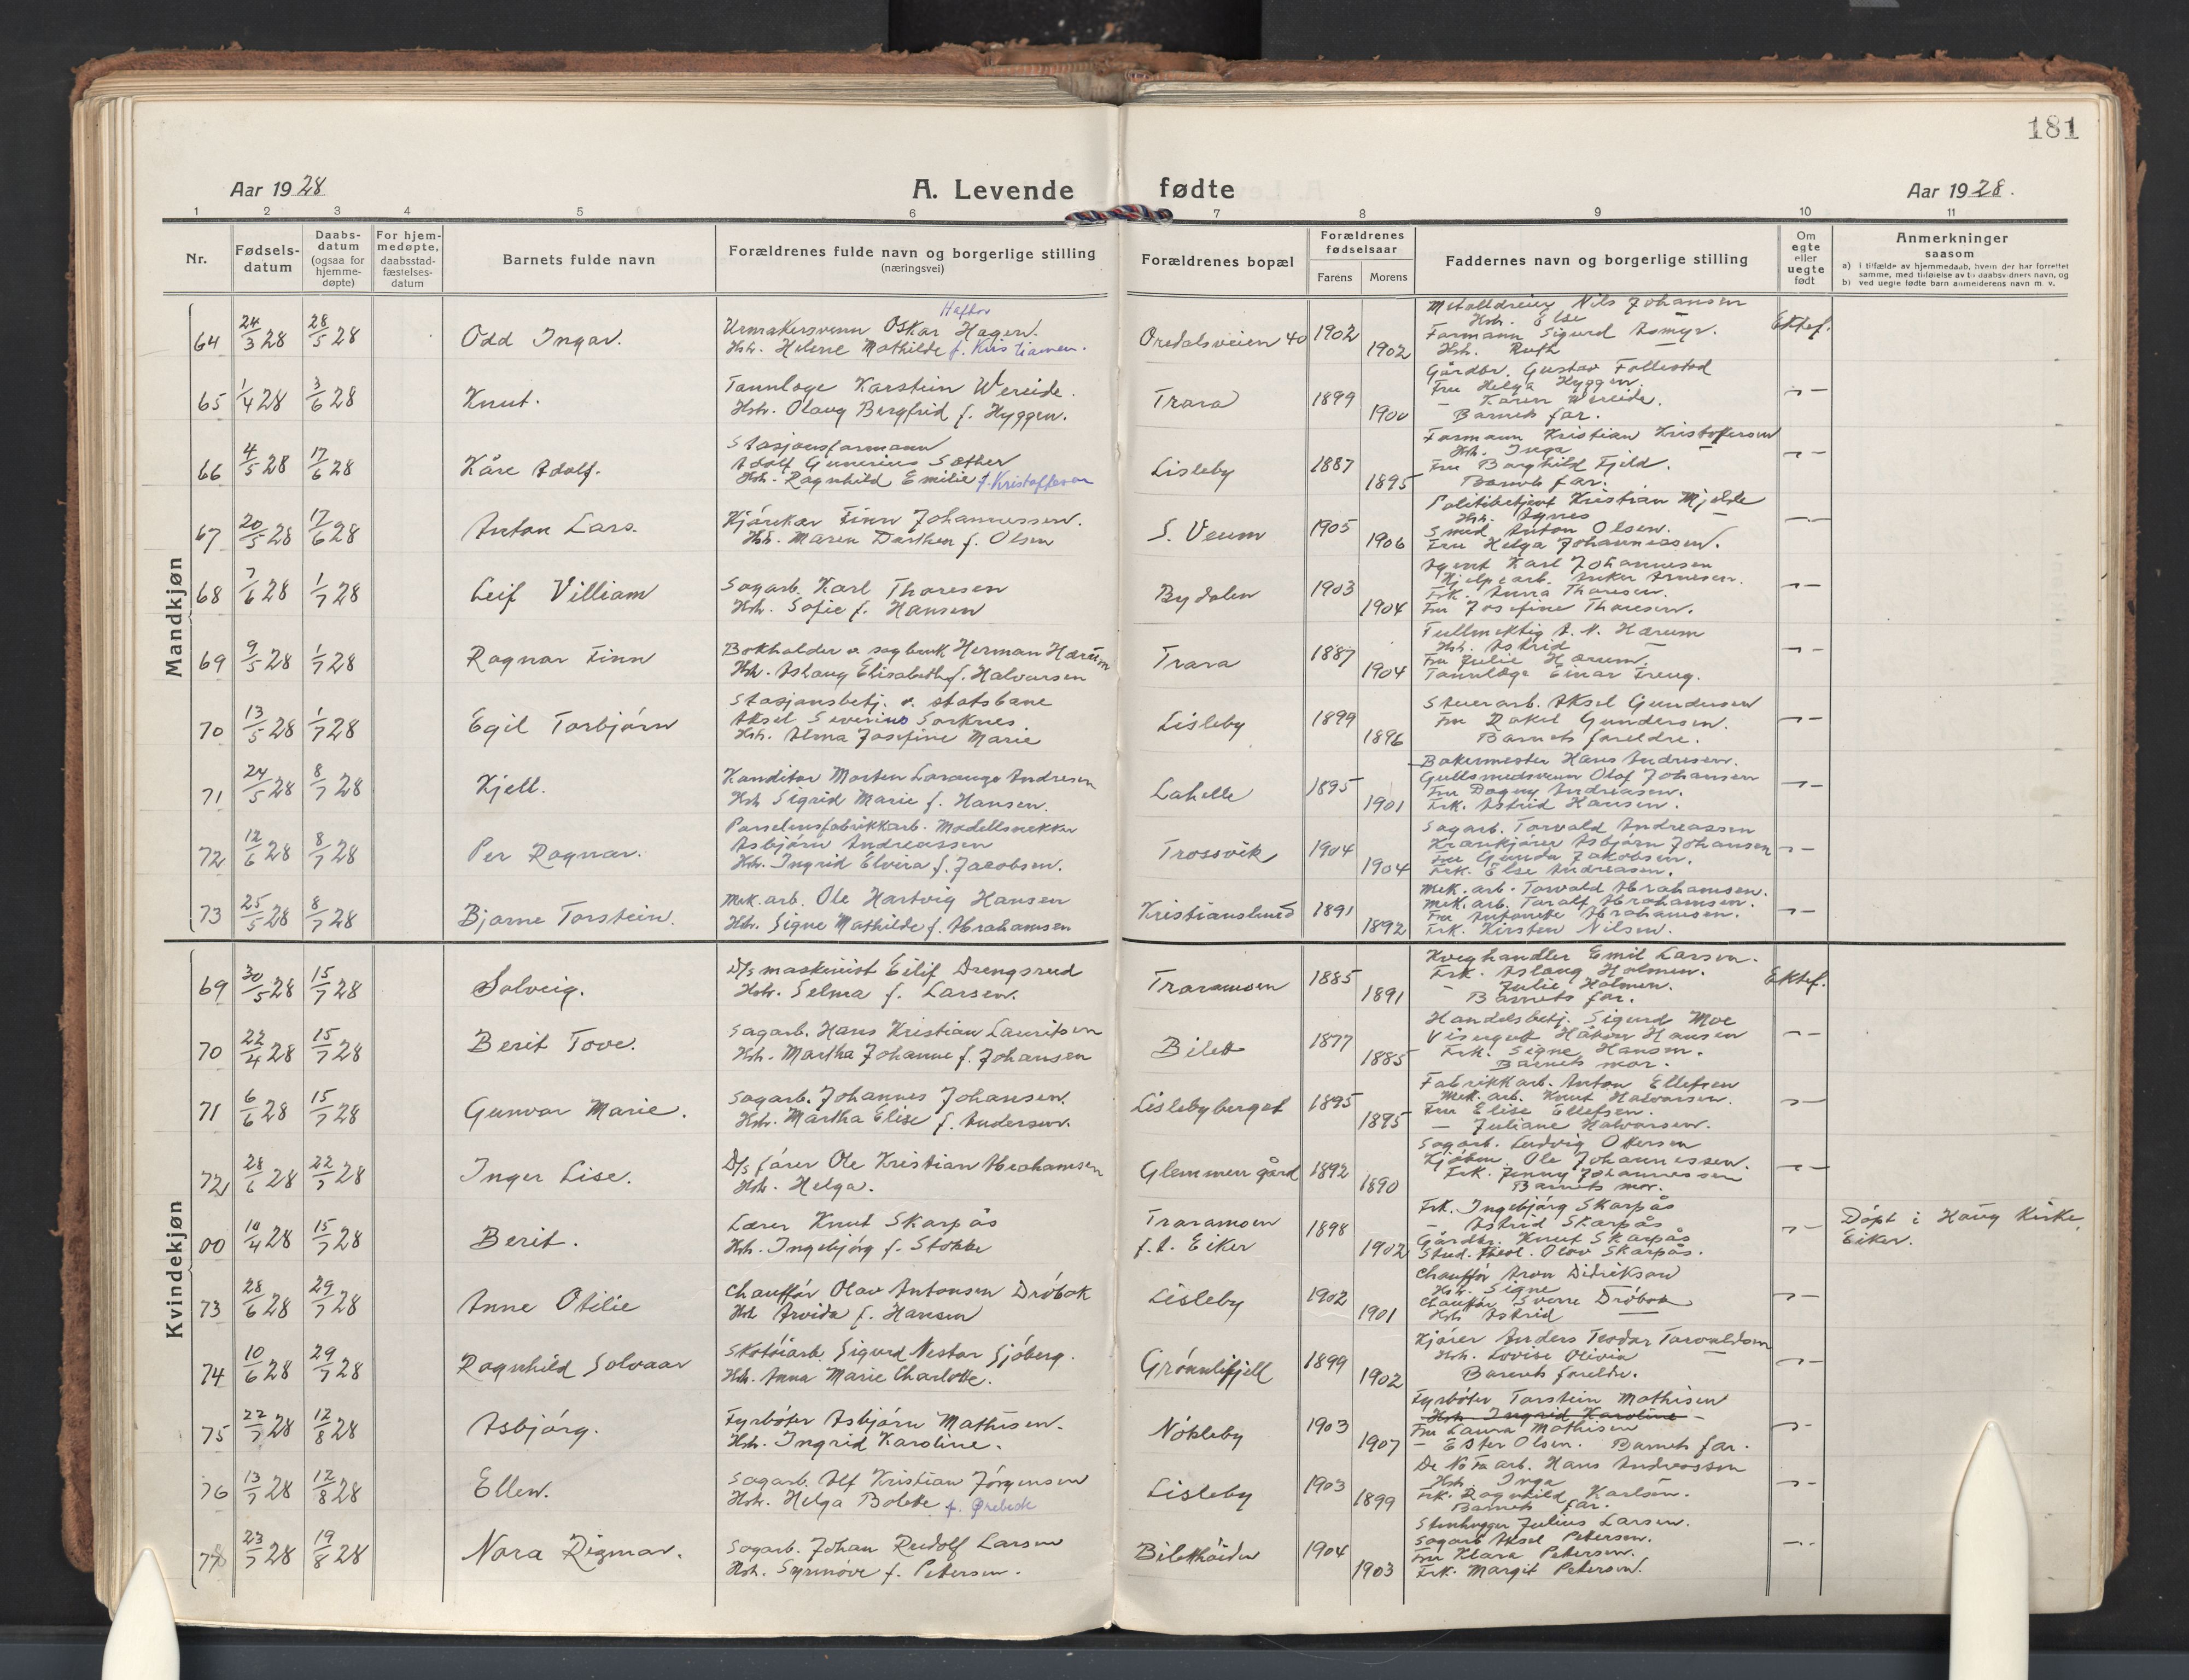 181
Aar 1928
A. Levende fødte
Aar 1928.
1 2 3 4 5 6 7 8 9 10 11
Nr.
Fødsels-
datum
Daabs-
datum
(ogsaa for
hjemme-
døpte)
For hjem-
medøpte,
daabsstad-
fæstelses-
datum
Barnets fulde navn
Forældrenes fulde navn og borgerlige stilling
(næringsvei)
Forældrenes bopæl
Forældrenes
fødselsaar
Farens Morens
Faddernes navn og borgerlige stilling
Om
egte
eller
uegte
født
Anmerkninger
saasom
a) i tilfælde av hjemmedaab, hvem der har forrettet
samme, med tilføielse av to daabsvidners navn, og
b) ved uegte fødte barn anmelderens navn m. v.
Mandkjøn
64 24/3 28 28/5 28
Odd Ingar.
Haftor
Urmakersvenn Oskar Hagen.
Hstr. Helene Mathilde f. Kristiansen.
Oredalsveien 40
1902
1902
Metalldreier Nils Johansen
Hstr. Else
Formann Sigurd Asmyr.
Hstr. Ruth
Ektef.
65 1/4 28 3/6 28
Knut.
Tannlæge Karstein Wereide.
Hstr. Olaug Bergfrid f. Hyggen.
Trara
1899
1900
Gårdbr. Gustav Follestad
Fru Helga Hyggen.
— Karen Wereide.
Barnets far.
66 4/5 28 17/6 28
Kåre Adolf.
Stasjonsformann
Adolf Gunerius Sæther
Hstr. Ragnhild Emilie f. Kristoffersen
Lisleby
1887
1895
Formann Kristian Kristoffersen
Hstr. Inga
Fru Borghild Fjeld.
Barnets far.
67 20/5 28 17/6 28
Anton Lars.
Kjørekar Finn Johannessen.
Hstr. Maren Dorthea f. Olsen
S. Veum
1905
1906
Politibetjent Kristian Mjelde
Hstr. Agnes
Smed Anton Olsen.
Fru Helga Johannessen.
68 7/6 28 1/7 28
Leif Villiam
Sagarb. Karl Thoresen
Hstr. Sofie f. Hansen
Bydalen
1903
1904
Agent Karl Johannesen
Hjelpearb. Anker Arnesen.
Frk. Anna Thoresen.
Fru Josefine Thoresen.
69 9/5 28 1/7 28
Ragnar Finn
Bokholder v. sagbruk Herman Hærum
Hstr. Aslaug Elisabeth f. Halvorsen
Trara
1887
1904
Fullmektig A. N. Hærum
Hstr. Astrid
Fru Julie Hærum.
Tannlæge Einar Freug.
70 13/5 28 1/7 28
Egil Torbjørn
Stasjonsbetj. v. statsbane
Aksel Severinus Sorknes
Hstr. Alma Josefine Marie
Lisleby
1899
1896
Stuerarb. Aksel Gundersen
Fru Rakel Gundersen.
Barnets foreldre.
71 24/5 28 8/7 28
Kjell.
Konditor Morten Lorange Andresen
Hstr Sigrid Marie f. Hansen.
Lahelle
1895
1901
Bakermester Hans Andresen.
Gullsmedsvenn Olaf Johansen
Fru Dagny Andreasen.
Frk. Astrid Hansen.
72 12/6 28 8/7 28
Per Ragnar.
Porselensfabrikkarb. Modellsnekker
Asbjørn Andreassen
Hstr. Ingrid Elvira f. Jacobsen.
Trossvik
1904
1904
Sagarb. Torvald Andreassen
Krankjører Asbjørn Johansen
Fru Gunda Jakobsen.
Frk. Else Andreasen.
73 25/5 28 8/7 28
Bjarne Torstein.
Mek. arb. Ole Hartvig Hansen
Hstr. Signe Mathilde f. Abrahamsen
Kristianslund
1891
1892
Mek. arb. Torvald Abrahamsen.
Mek. arb. Toralf Abrahamsen.
Fru Antonette Abrahamsen.
Frk. Kirsten Nilsen.
Kvindekjøn
69 30/5 28 15/7 28
Solveig.
D/s maskinist Eilif Drengsrud
Hstr. Selma f. Larsen.
Traramoen
1885
1891
Kveghandler Emil Larsen.
Frk. Aslaug Holmen.
— Julie Holmen.
Barnets far.
Ektef.
70 22/4 28 15/7 28
Berit Tove.
Sagarb. Hans Kristian Lauritsen
Hstr. Martha Johanne f. Johansen
Bilett
1877
1885
Handelsbetj. Sigurd Moe
Visergutt Håkon Hansen
Frk. Signe Hansen.
Barnets mor.
71 6/6 28 15/7 28
Gunvor Marie.
Sagarb. Johannes Johansen.
Hstr. Martha Elise f. Andersen.
Lislebyberget
1895
1895
Fabrikkarb. Anton Ellefsen
Mek. arb. Knut Halvorsen.
Fru Elise Ellefsen.
— Juliane Halvorsen.
72 28/6 28 22/7 28
Inger Lise.
D/s fører Ole Kristian Abrahamsen
Hstr. Helga.
Glemmen gård
1892
1890
Sagarb. Ludvig Ottersen
Kjøbm. Ole Johannessen.
Frk. Jenny Johannessen
Barnets mor.
00 10/4 28 15/7 28
Berit.
Lærer Knut Skarpås
Hstr. Ingebjørg f. Stokke
Traramoen
f. t. Eiker
1898
1902
Frk. Ingebjørg Skarpås
— Astrid Skarpås
Gårdbr. Knut Skarpås
Stud. theol. Olav Skarpås.
Døpt i Haug Kirke,
Eiker.
73 28/6 28 29/7 28
Anne Otilie
Chauffør Olav Antonsen Drøbak
Hstr Arvida f. Hansen
Lisleby
1902
1901
Chauffør Aron Didriksen
Hstr. Signe
Chauffør Sverre Drøbak
Hstr Astrid
74 10/6 28 29/7 28
Ragnhild Solvaar
Skotøiarb. Sigurd Nestor Sjøberg.
Hstr. Anna Marie Charlotte.
Grønnlifjell
1899
1902
Kjører Anders Teodor Torvaldsen
Hstr. Lovise Olivia
Barnets foreldre.
75 22/7 28 12/8 28
Asbjørg.
Fyrbøter Asbjørn Mathisen.
Hstr. Ingrid Karoline.
Nøkleby
1903
1907
Fyrbøter Torstein Mathisen
Hstr Ingrid Karoline
Fru Laura Mathisen
— Ester Olsen. Barnets far.
76 13/7 28 12/8 28
Ellen.
Sagarb. Alf Kristian Jørgensen
Hstr. Helga Bolette f. Ørebekk
Lisleby
1903
1899
De No Fa arb. Hans Andreassen
Hstr. Inga
Frk. Ragnhild Karlsen.
Barnets far.
77 23/7 28 19/8 28
Nora Rigmor.
Sagarb. Johan Rudolf Larsen
Hstr. Synnøve f. Petersen.
Biletthøiden
1904
1903
Stenhugger Julius Larsen.
Sagarb Aksel Petersen.
Fru Klara Petersen.
Frk. Margit Petersen.